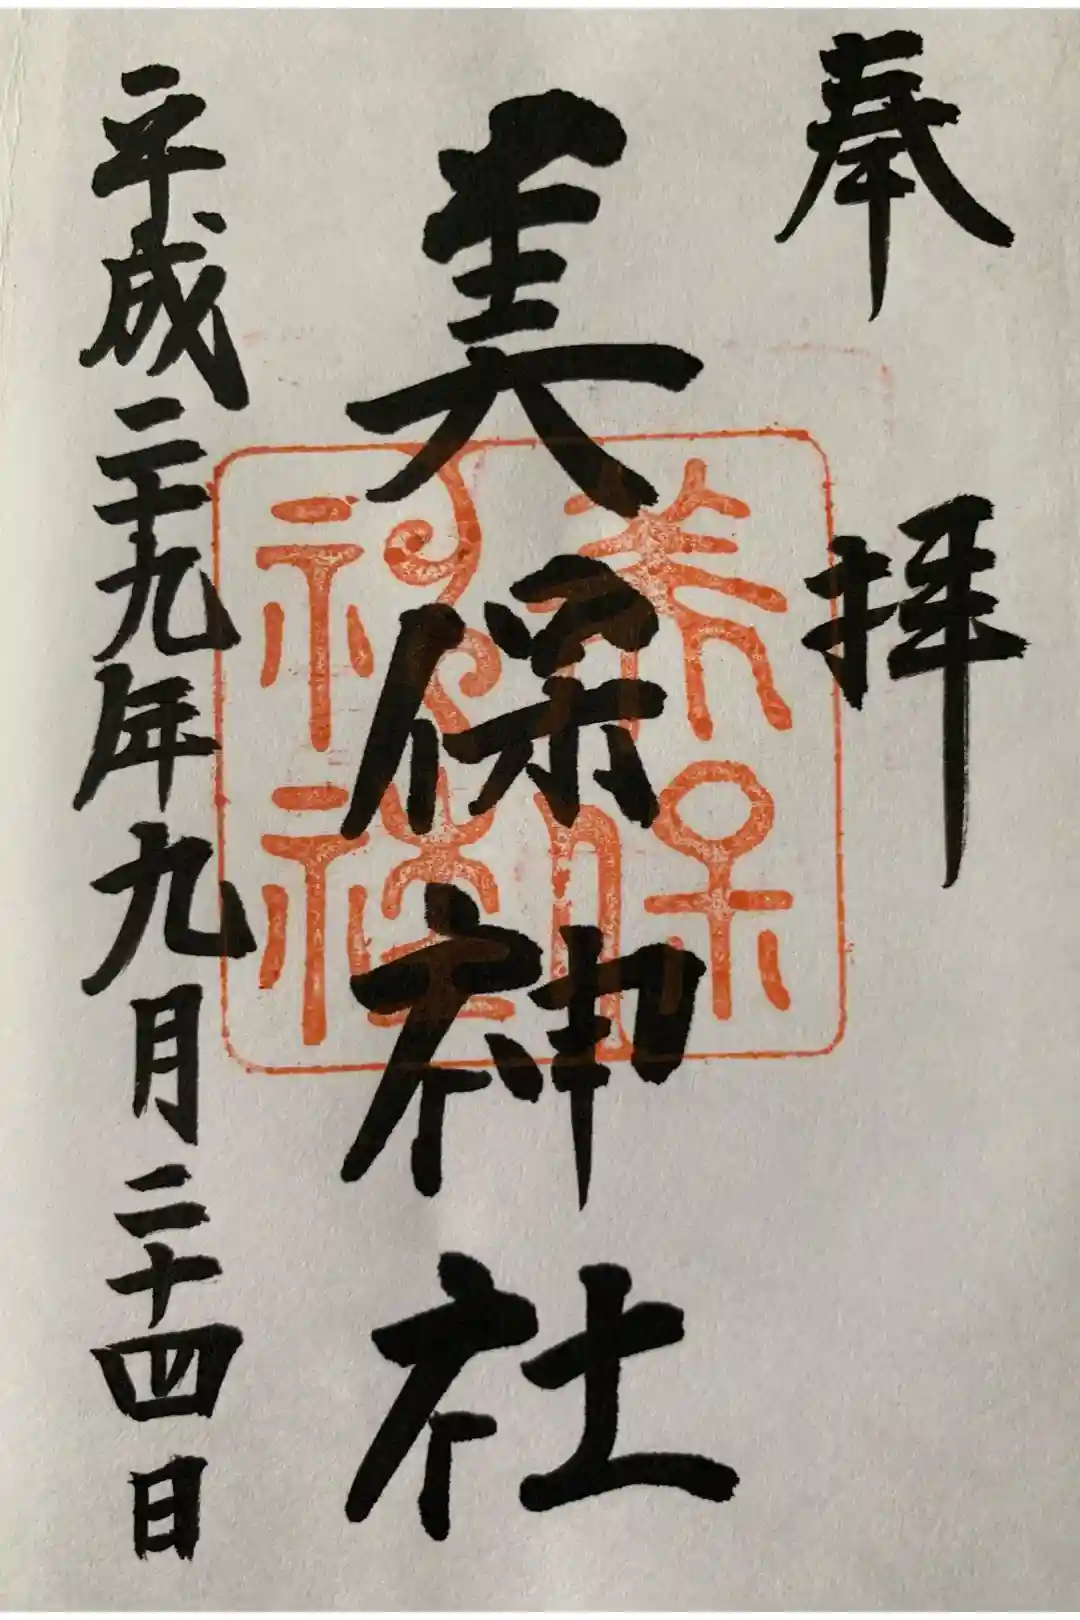 奉拝
美保神社
平成二十九年九月二十四日
美保
神社